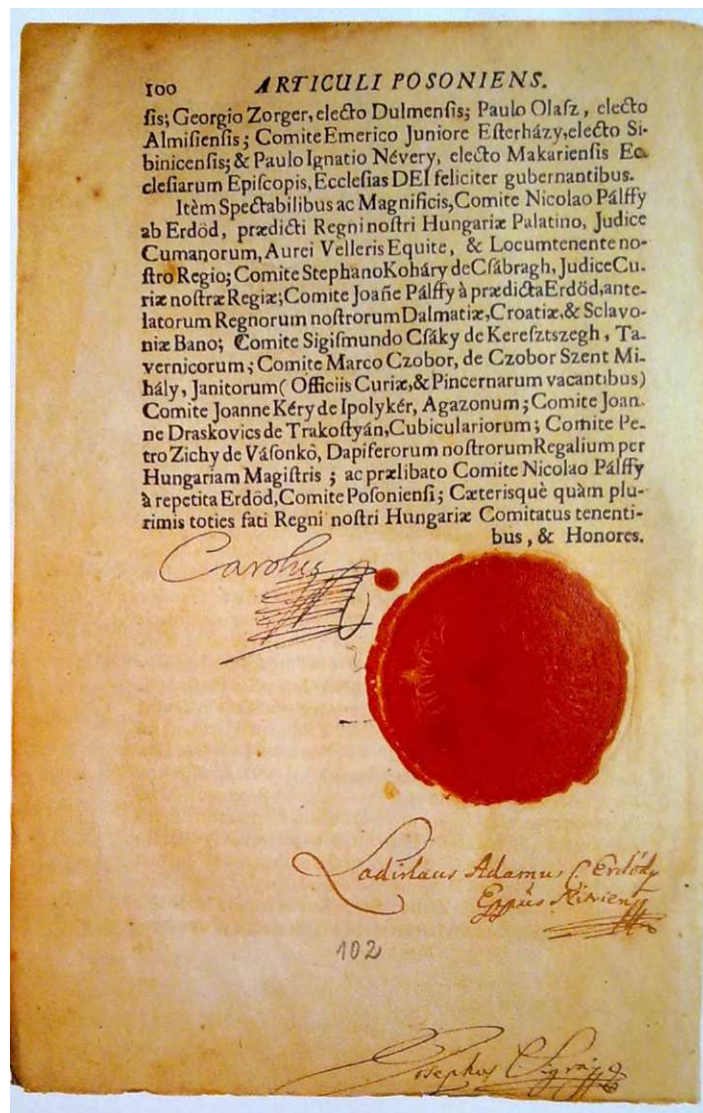 100 ARTICULI POSONIENS.
ſis; Georgio Zorger, electo Dulmenſis; Paulo Olaſz, electo
Almiſienſis; Comite Emerico Juniore Eſterházy, electo Si-
binicenſis; & Paulo Ignatio Névery, electo Makarienſis Ec-
cleſiarum Epiſcopis, Eccleſias DEI feliciter gubernantibus.
Itèm Spectabilibus ac Magnificis, Comite Nicolao Pálffy
ab Erdöd, prædicti Regni noſtri Hungariæ Palatino, Judice
Cumanorum, Aurei Velleris Equite, & Locumtenente no-
ſtro Regio; Comite Stephano Koháry de Cſábragh, Judice Cu-
riæ noſtræ Regiæ; Comite Joan̄e Pálffy à prædicta Erdöd, ante-
latorum Regnorum noſtrorum Dalmatiæ, Croatiæ, & Sclavo-
niæ Bano; Comite Sigiſmundo Cſáky de Kereſztszegh, Ta-
vernicorum; Comite Marco Czobor, de Czobor Szent Mi-
hály, Janitorum (Officiis Curiæ, & Pincernarum vacantibus)
Comite Joanne Kéry de Ipolykér, Agazonum; Comite Joan-
ne Draskovics de Trakoſtyán, Cubiculariorum; Comite Pe-
tro Zichy de Váſonkö, Dapiferorum noſtrorum Regalium per
Hungariam Magiſtris; ac prælibato Comite Nicolao Pálffy
à repetita Erdöd, Comite Poſonienſi; Cæterisquè quàm plu-
rimis toties fati Regni noſtri Hungariæ Comitatus tenenti-
bus, & Honores.
Carolus
Ladislaus Adamus C. Erdödy
Eppüs Nitrien
102
Josephus